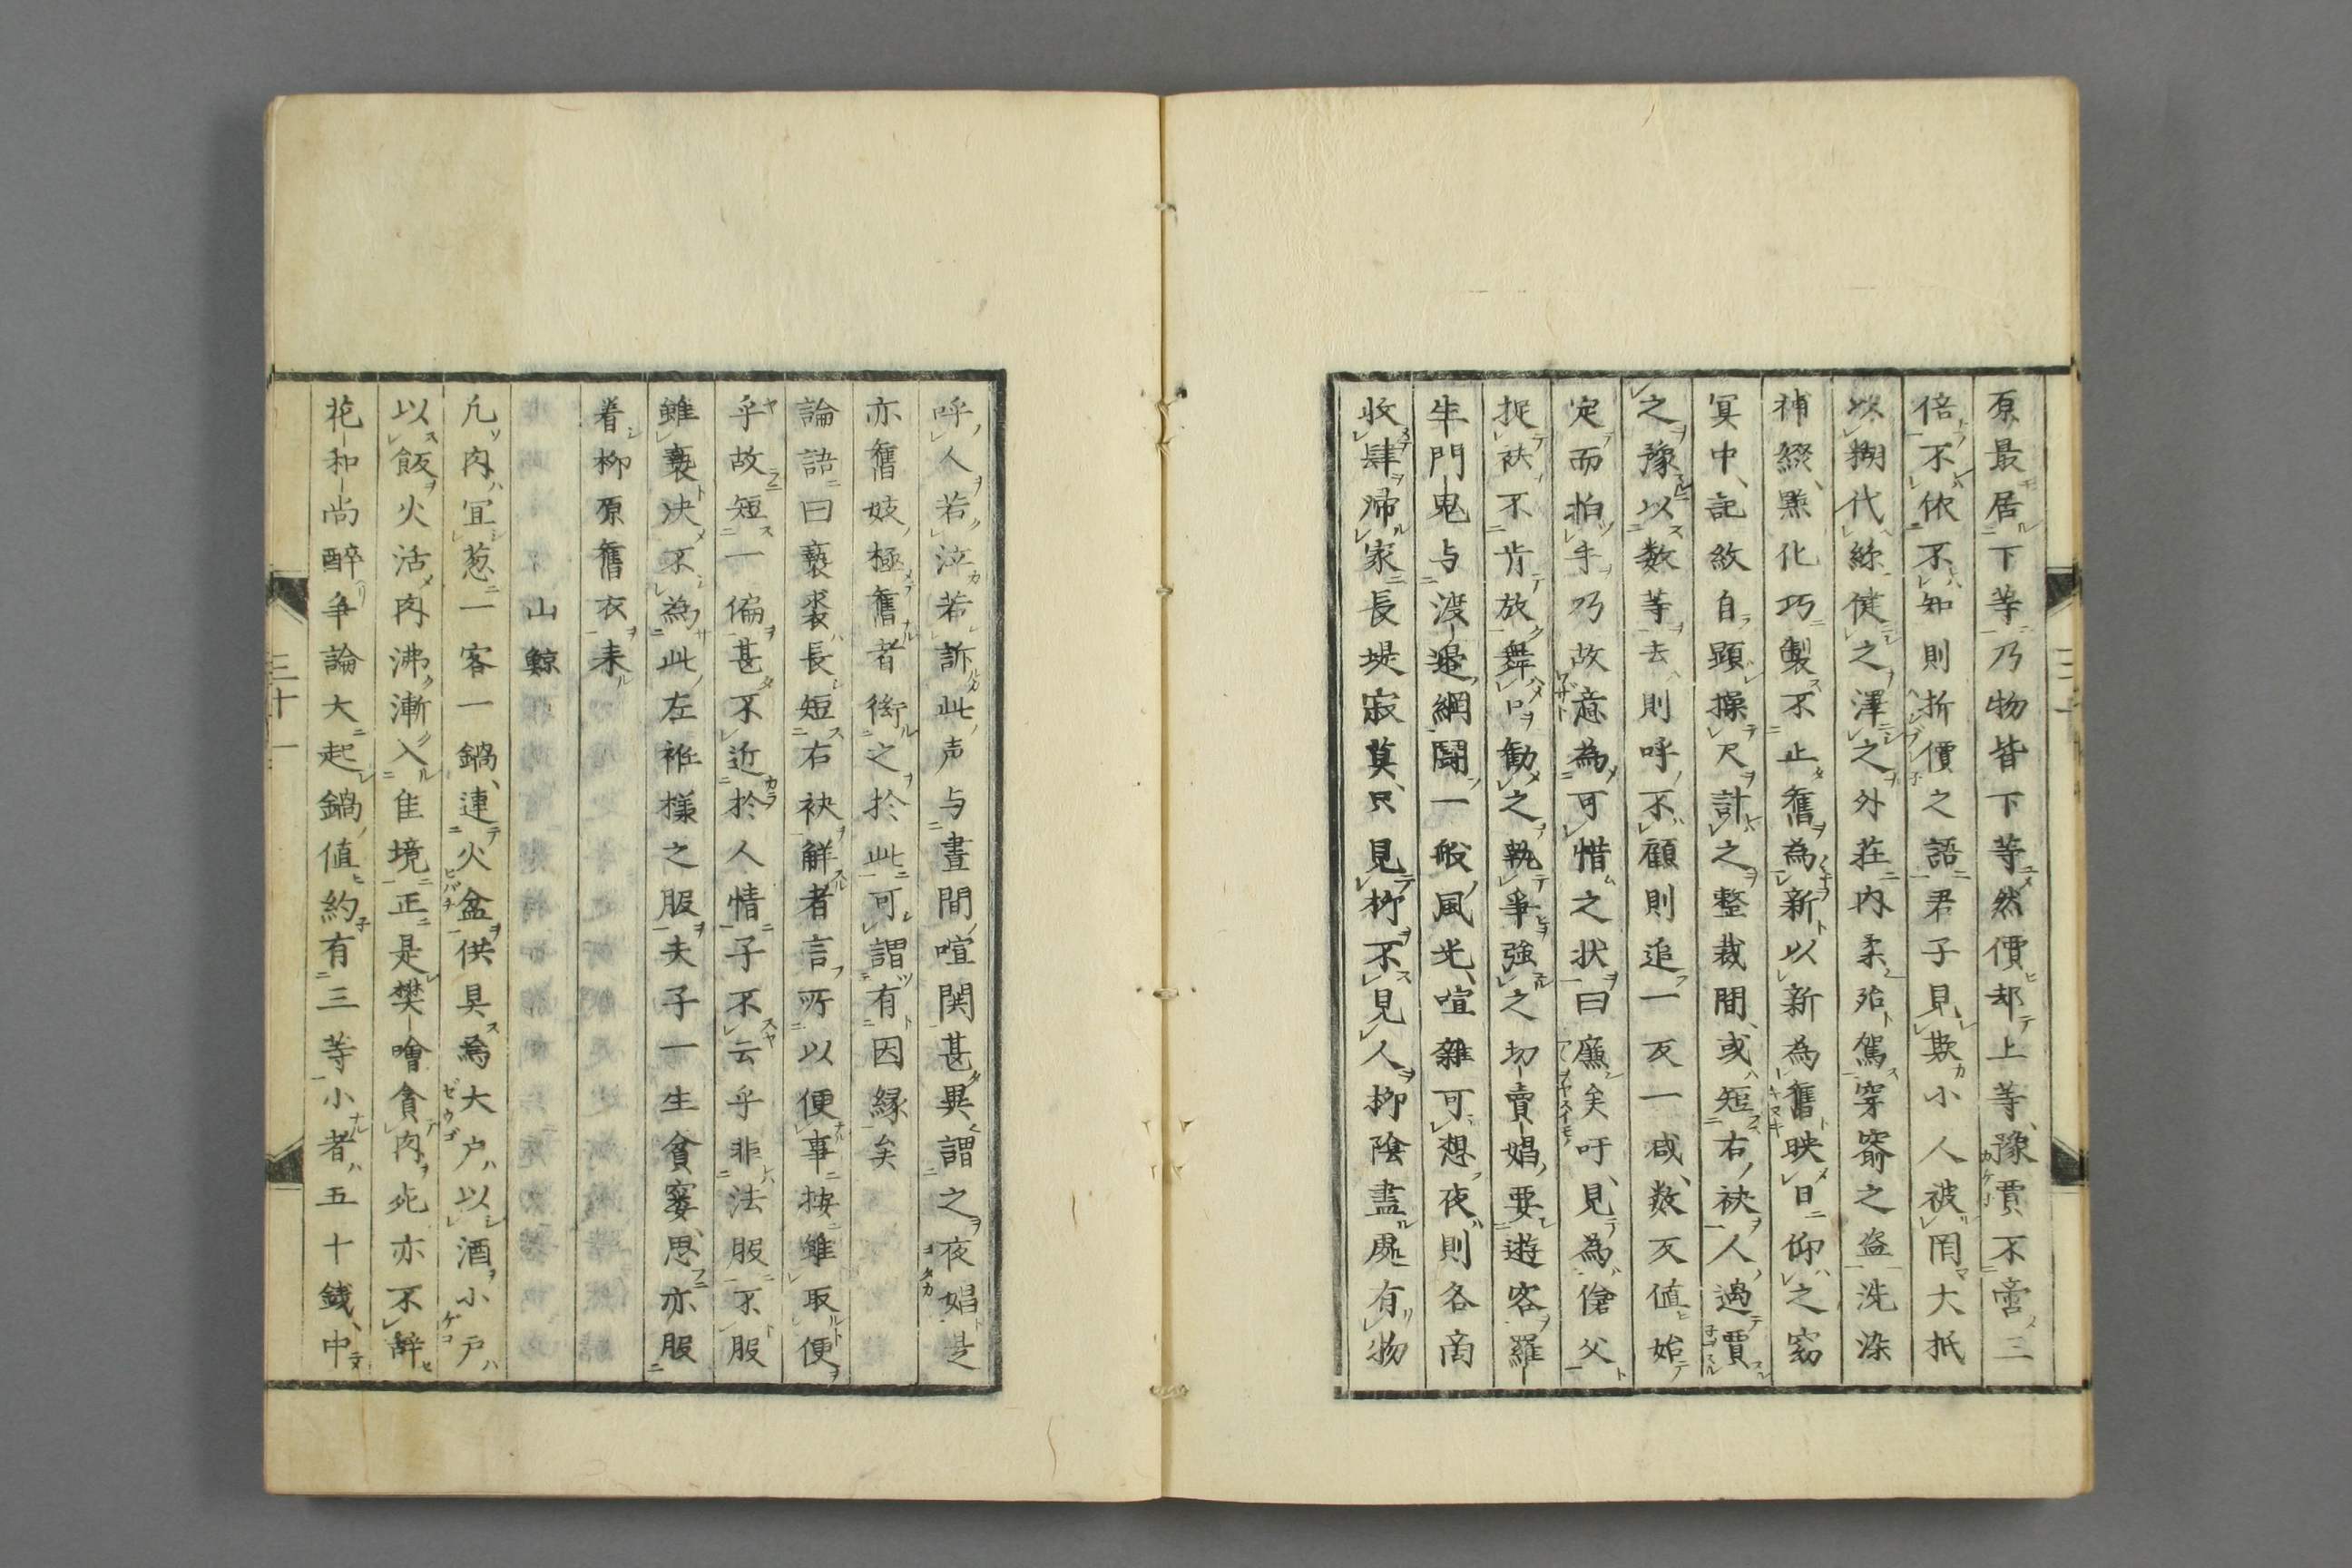 原最居下等乃物皆下等然價却上等豫賈不啻三
倍不依不知則折價之語君子見欺小人被罔大抵
以糊代絲健之澤之外莊内柔殆駕穿窬之盗洗染
補綴點化巧製不止舊為新以新為舊映日仰之窈
冥中記紋自顕操尺計之整裁間或短右袂人過賈
之豫以数等去則呼不顧則追一反一減数反値始
定而拍手乃故意為可惜之状曰廉矣吁見為傖父
捉袂不肯放舞口勧之執爭強之切賣娼要遊客羅
生門鬼与渡邉綱鬪一般風光喧雑可想夜則各啇
收肆歸家長堤寂莫只見栁不見人栁陰盡處有物
呼人若泣若訴此声与晝間喧関甚異謂之夜娼是
亦舊妓極舊者衒之於此可謂有因縁矣
論語曰褻裘長短右袂觧者言所以便事按雖取便
乎故短一偏甚不近於人情子不云乎非法服不服
雖褻决不為此左袵様之服夫子一生貧窶思亦服
着栁原舊衣耒
山鯨
凢肉冝葱一客一鍋連火盆供具焉大户以酒小户
以飯火活肉沸漸入佳境正是樊噲貪肉死亦不辞
花和尚醉爭論大起鍋値約有三等小者五十銭中
三十一